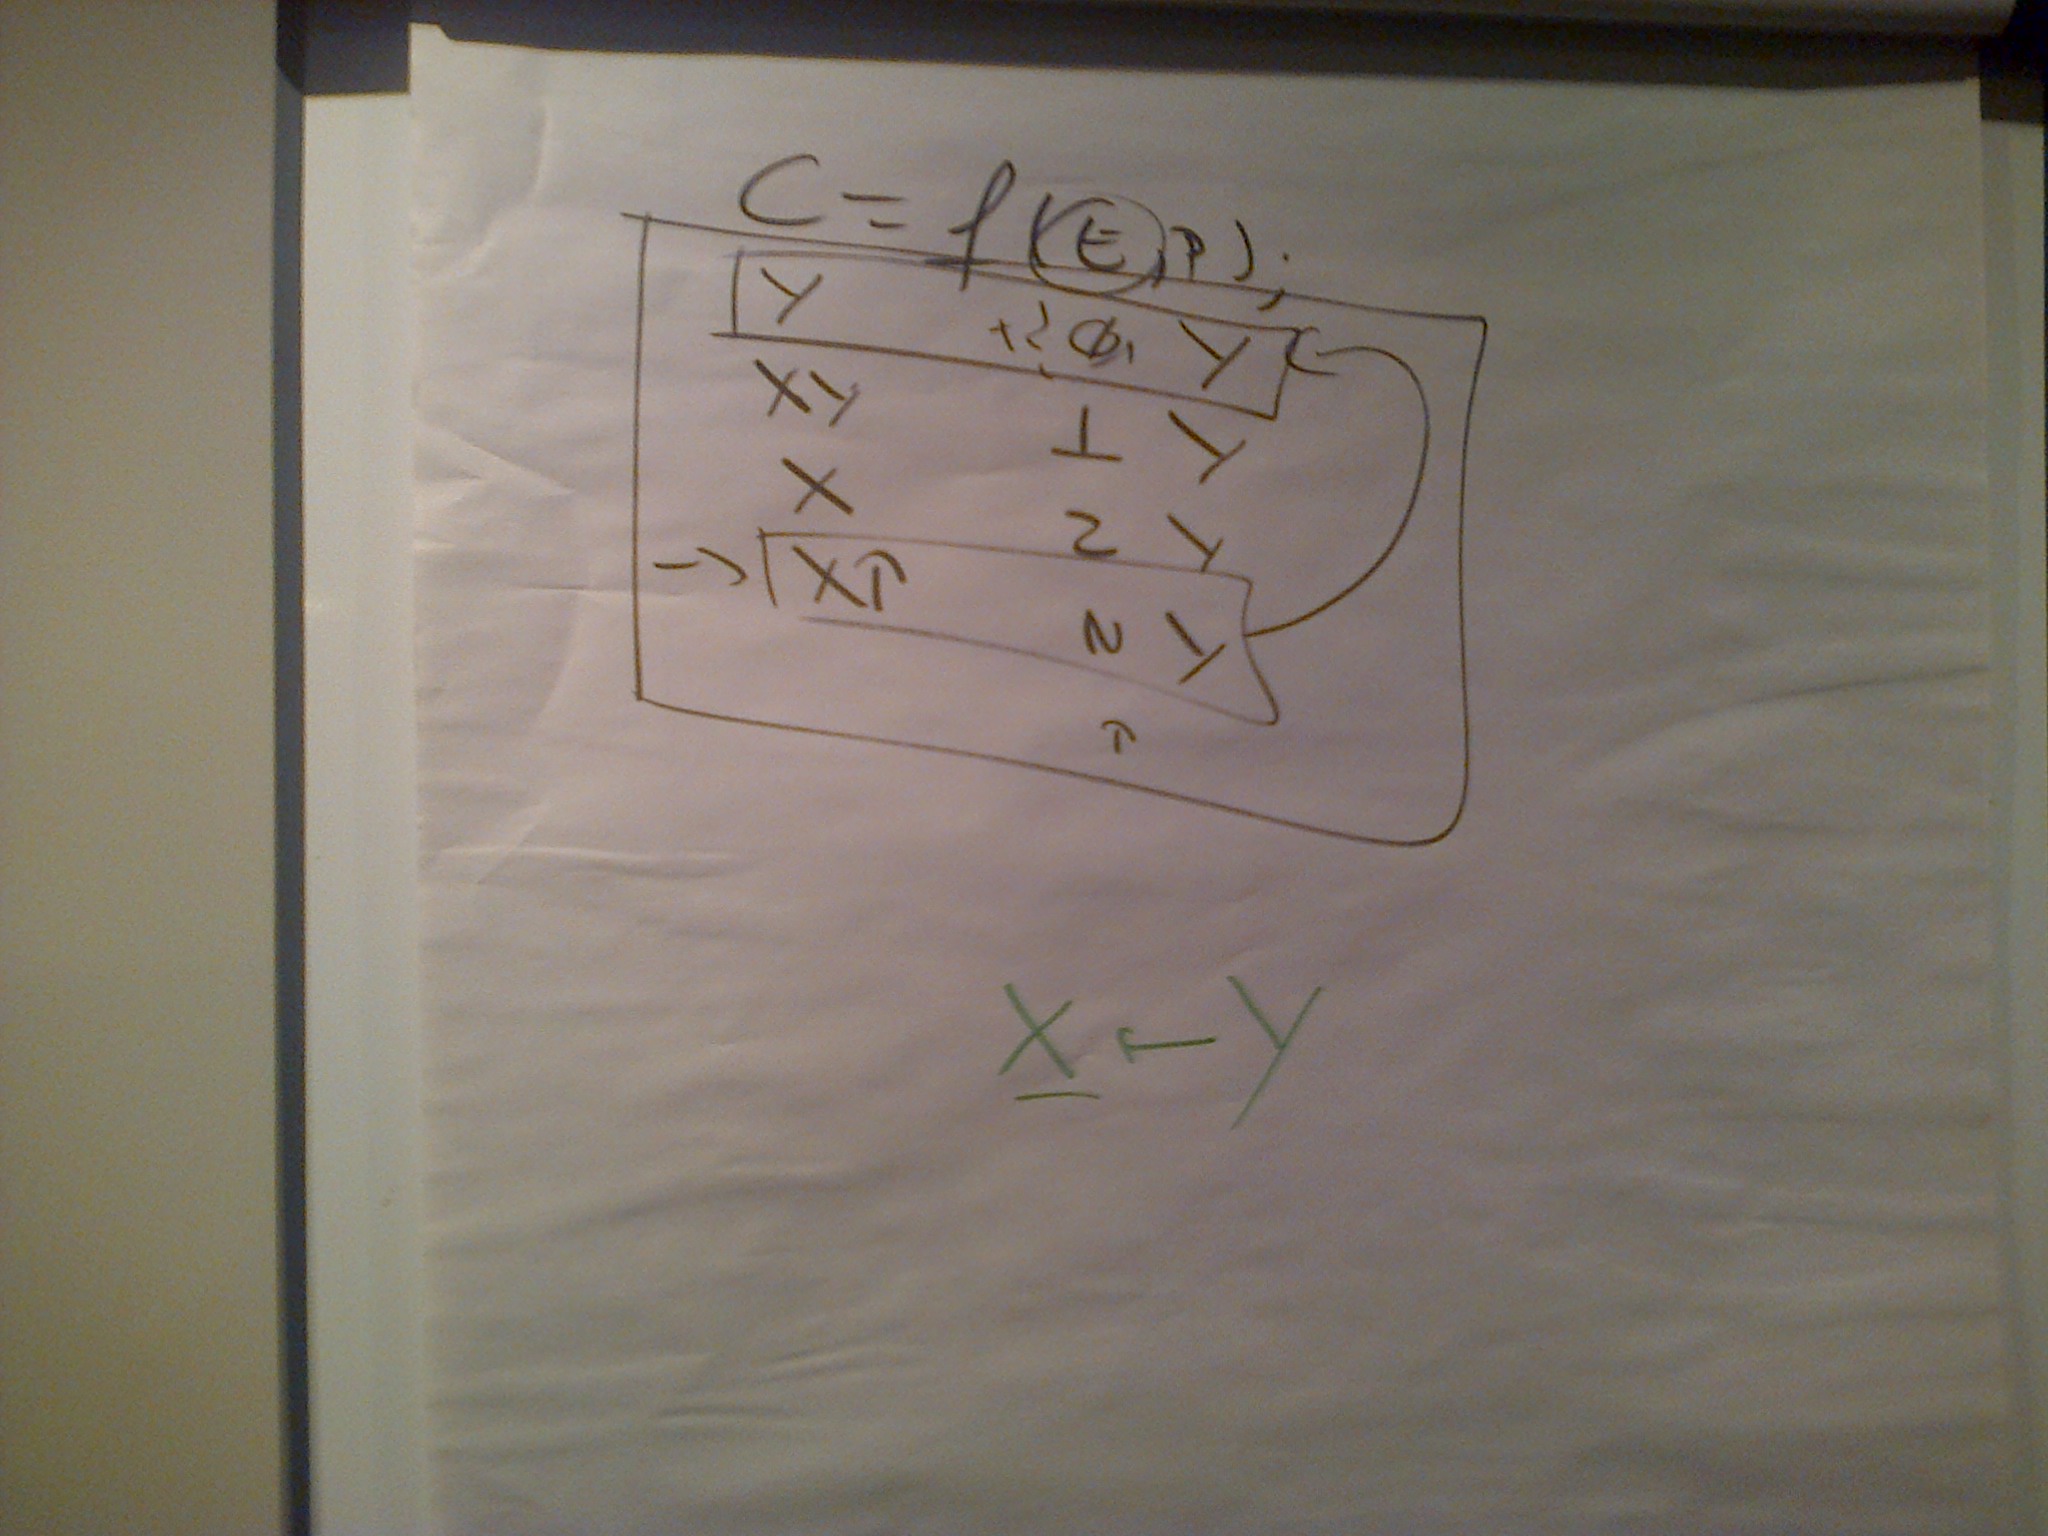 C = f(E, P);
Y Y
XY 1 Y
X 2 Y
→ X↑ 2 Y
↑
X ← Y